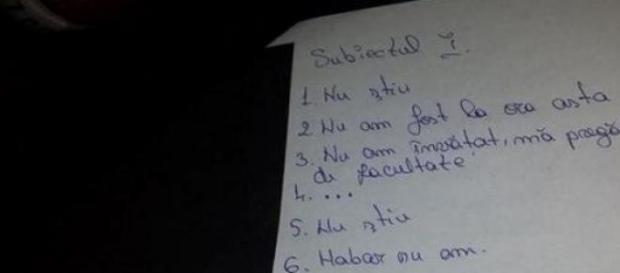 Subiectul I.
1. Nu știu
2 Nu am fost la ora asta
3. Nu am învățat, mă pregă
de facultate
4. ...
5. Nu știu
6. Habar nu am.